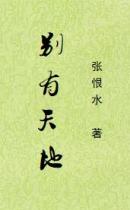 别有天地
张恨水 著